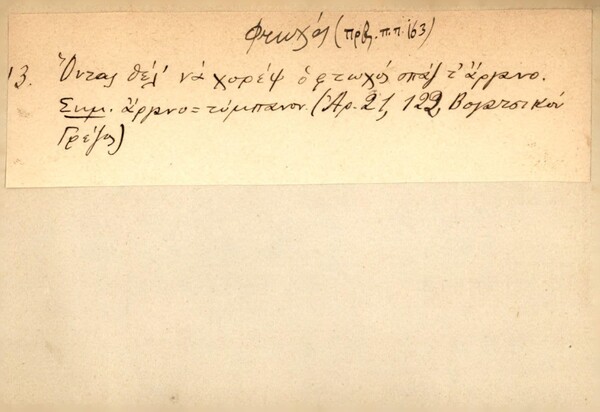 φτωχός (πρβ. π.π. 163)
13. Όντας θέλ' νά χορέψ' ὁ φτωχός σπάζ' τ' ἄργανο.
Σημ. ἄργανο = τύμπανον. (Ἀρ. 21, 122, Βογατσικόν